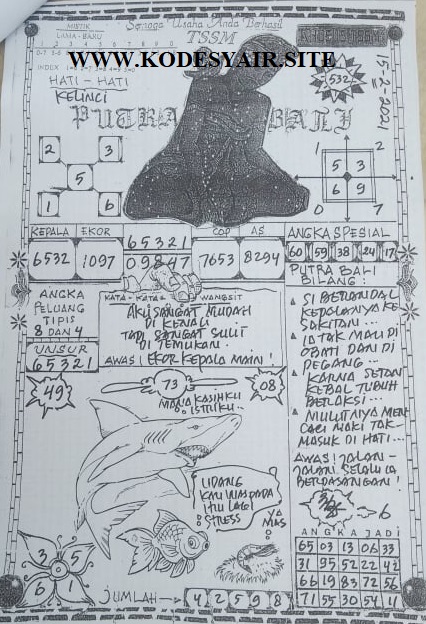 Semoga Usaha Anda Berhasil
MISTIK
LAMA - BARU
TSSM
WWW.KODESYAIR.SITE
INDEX
HATI - HATI
KELINCI
532
15-2-2021
PUTRA BALI
2 3
5
1 6
1 2
5 3
6 9
0 7
KEPALA EKOR
6532 1097
65321
09847
COP AS
7653 8294
ANGKA SPESIAL
60 59 38 24 17
ANGKA
PELUANG
TIPIS
8 DAN 4
UNSUR
65321
KATA - KATA WANGSIT
AKU SANGAT MUDAH
DI KENALI
TAPI SANGAT SULIT
DI TEMUKAN.
AWAS! EKOR KEPALA MAIN!
PUTRA BALI
BILANG:
SI BERANDAL
KEPALANYA KE
SAKITAN...
IA TAK MAU DI
OBATI DAN DI
PEGANG..
KARNA SETAN
KEBAL TUBUH
BERLAKSI...
MULUTNYA MEN
CACI MAKI TAK
MASUK DI HATI...
AWAS! JALAN-
JALAN SELALU IA
BERPASANGAN!
49
73
08
MANA KASIHKU
ISTRIKU..
UDANG
KAU WASPADA
IHU LAGI
STRESS
YA
MAS
6
3 5
6 1
JUMLAH
4 2 5 9 8
ANGKA JADI
65 03 13 06 33
31 95 52 22 42
66 19 83 72 56
71 55 30 54 11